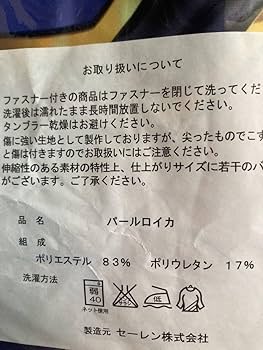 お取り扱いについて
ファスナー付きの商品はファスナーを閉じて洗ってくだ
洗濯後は濡れたまま長時間放置しないでください。
タンブラー乾燥はお避けください。
傷に強い生地として製作しておりますが、尖ったものでこす
と傷は付きますのでお取扱いにはご注意ください。
伸縮性のある素材の特性上、仕上がりサイズに若干のバ
がございます。ご了承ください。
品名 パールロイカ
組成
ポリエステル 83% ポリウレタン 17%
洗濯方法
弱
40
低
ネット使用
製造元 セーレン株式会社